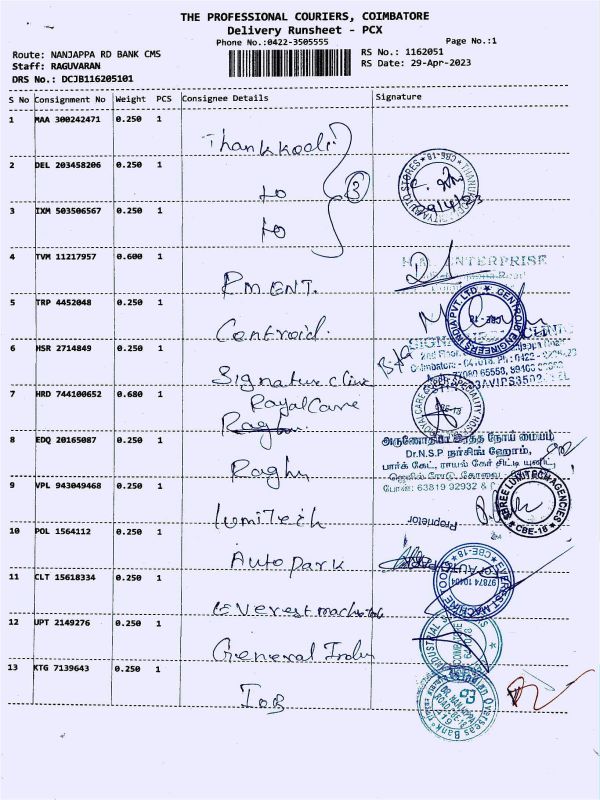 THE PROFESSIONAL COURIERS, COIMBATORE
Delivery Runsheet - PCX
Phone No.:0422-3505555
Page No.:1
Route: NANJAPPA RD BANK CMS
RS No.: 1162051
Staff: RAGUVARAN
RS Date: 29-Apr-2023
DRS No.: DCJB116205101
S No Consignment No Weight PCS Consignee Details Signature
1 MAA 300242471 0.250 1
Thankkodi
2 DEL 203458206 0.250 1
to
3
29/4/23
3 IXM 503506567 0.250 1
to
4 TVM 11217957 0.600 1
ENTERPRISE
R.M. ENT.
5 TRP 4452048 0.250 1
Centroid.
CENTROID ENGINEERS INDIA PVT. LTD.
6 HSR 2714849 0.250 1
Signature clinic
7 HRD 744100652 0.680 1
Royal Care
Raghu
CBE-18
8 EDQ 20165087 0.250 1
Raghu
அருணோதயா இரத்த நோய் மையம்
Dr.N.S.P நர்சிங் ஹோம்,
பார்க் கேட், ராயல் கேர் சிட்டி யூனிட்,
போன்: 63819 92932
9 VPL 943049468 0.250 1
Lumitech
SHREE LUMITECH AGENCIES
CBE-18
Proprietor
10 POL 1564112 0.250 1
Auto park
11 CLT 15618334 0.250 1
Everest machine tools
EVEREST MACHINE TOOLS
CBE-18
97874 10404
12 UPT 2149276 0.250 1
General Indus
13 KTG 7139643 0.250 1
IOB
Indian Overseas Bank